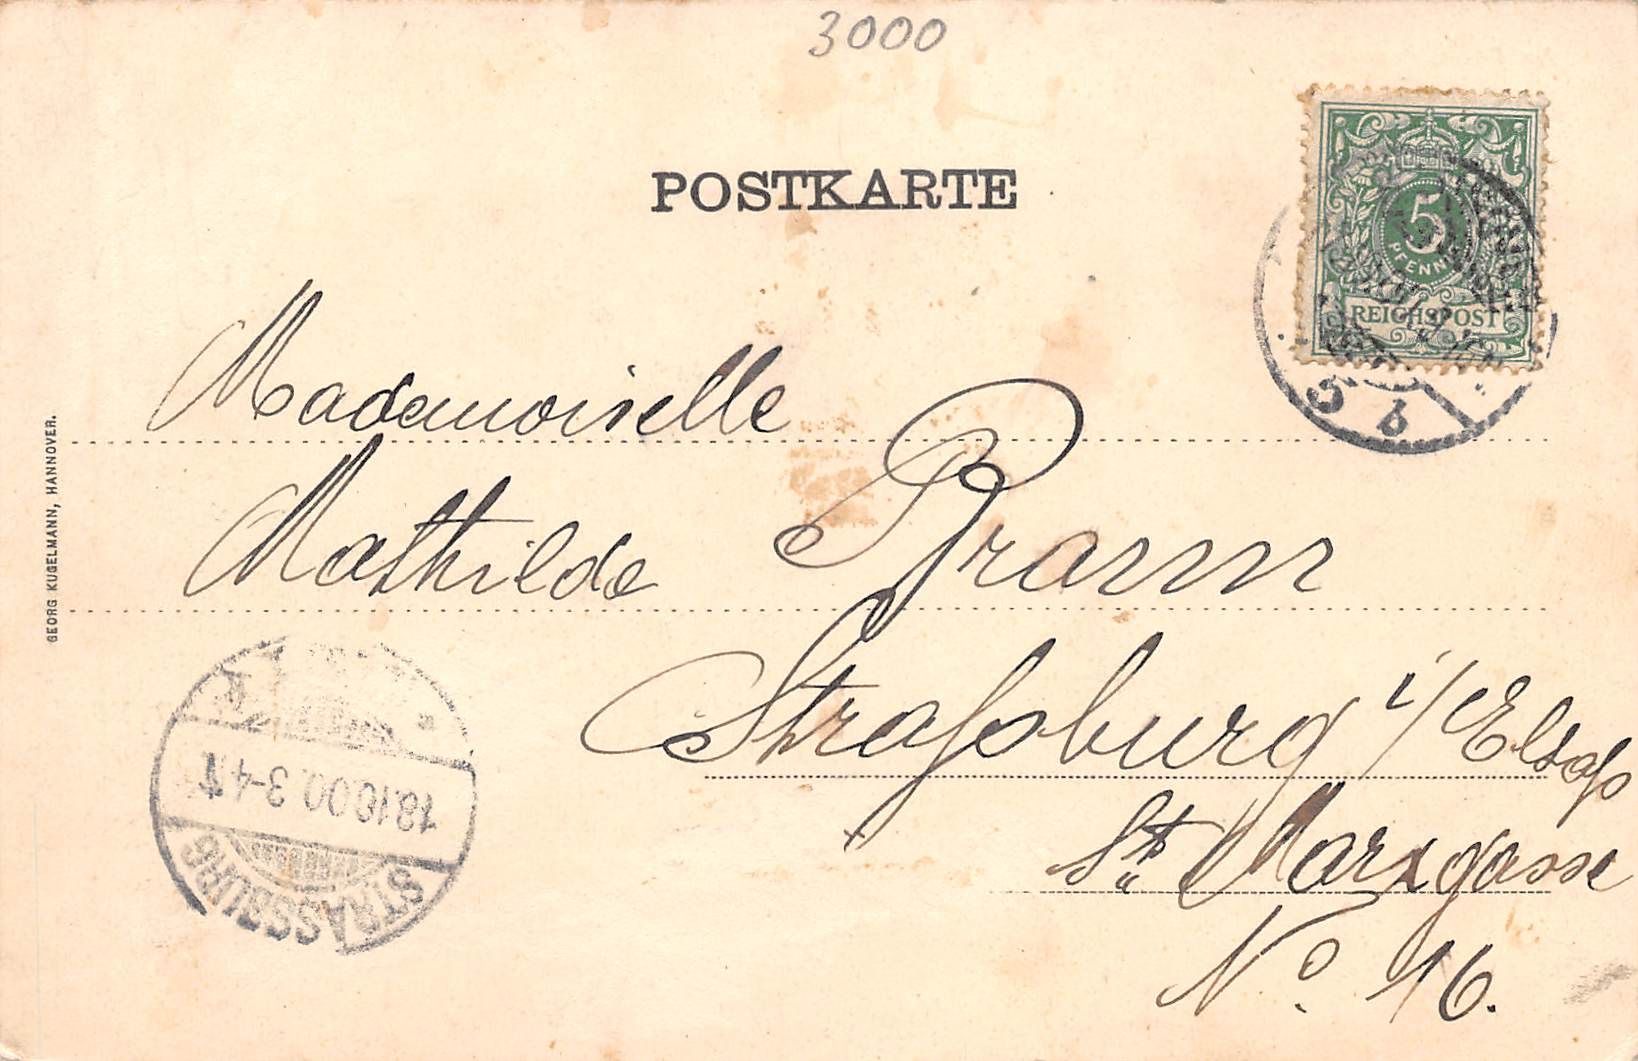 3000
POSTKARTE
5
PFENNIG
REICHSPOST
5 b
Mademoiselle
Mathilde Pramm
Straßburg i/Elsaß
St. Marxgasse
No. 16.
GEORG KUGELMANN, HANNOVER.
STRASSBURG
18.10.00. 3-4 N
k